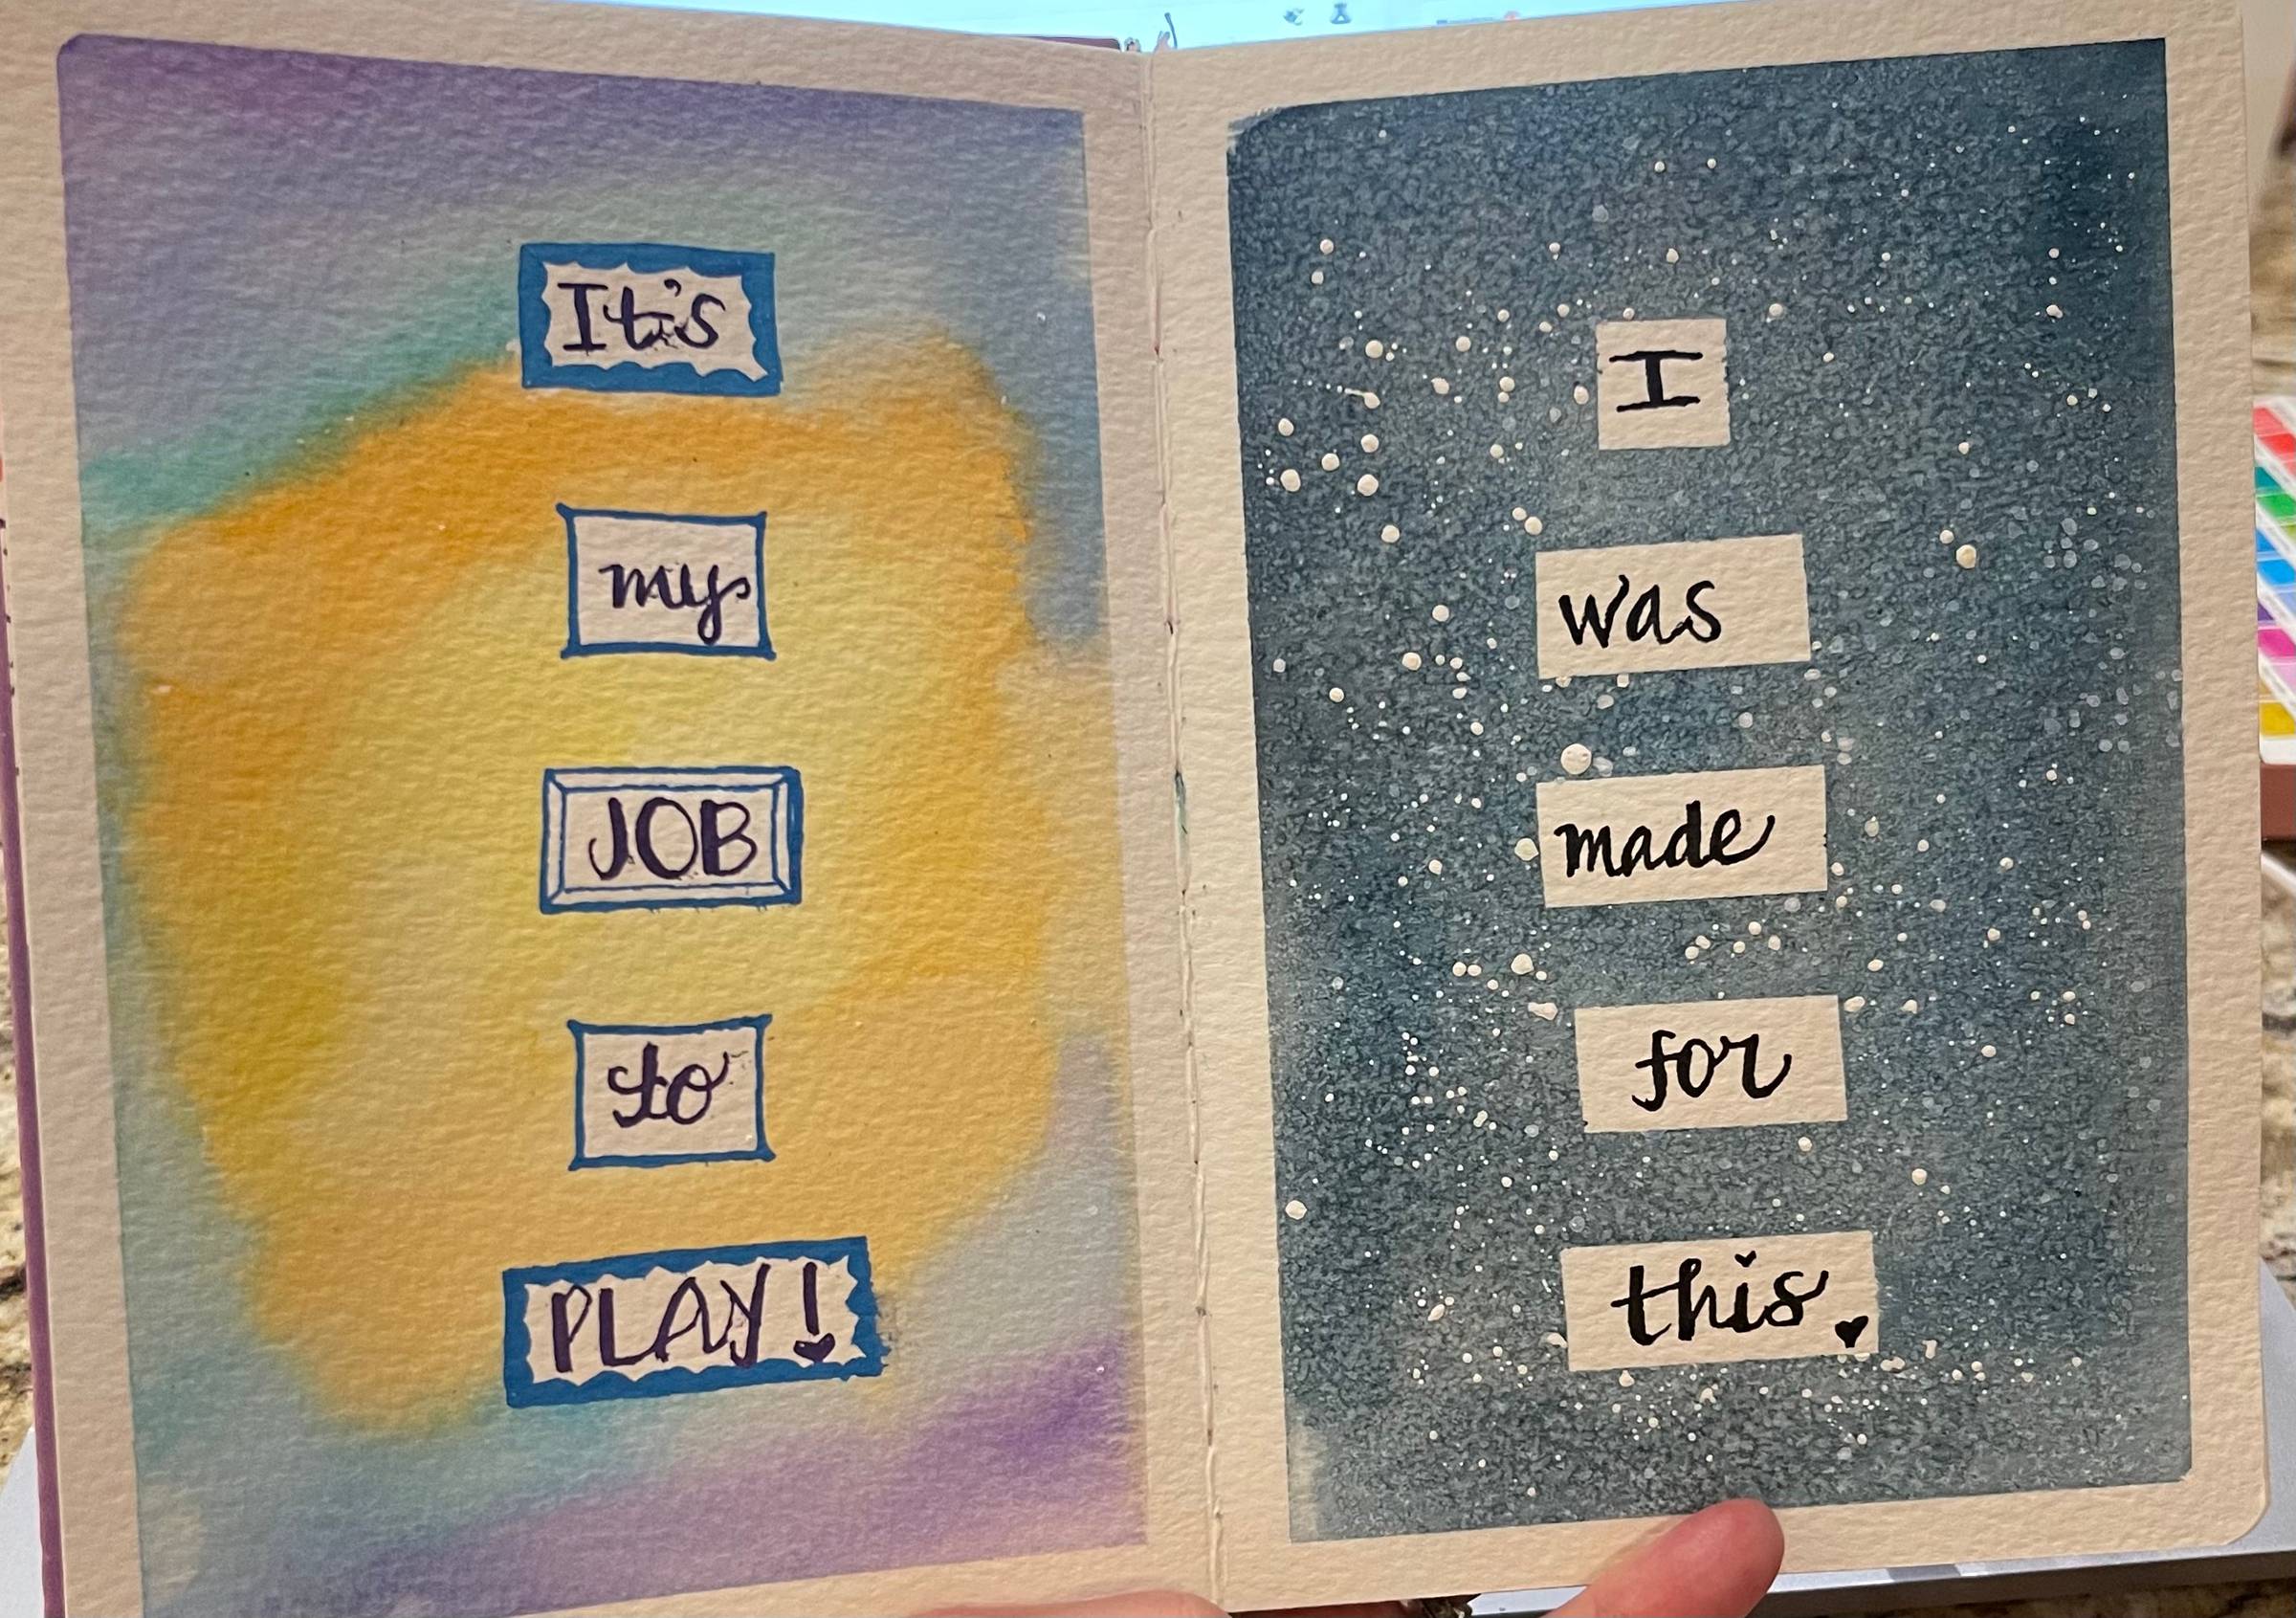 It's
my
JOB
to
PLAY!
I
was
made
for
this.